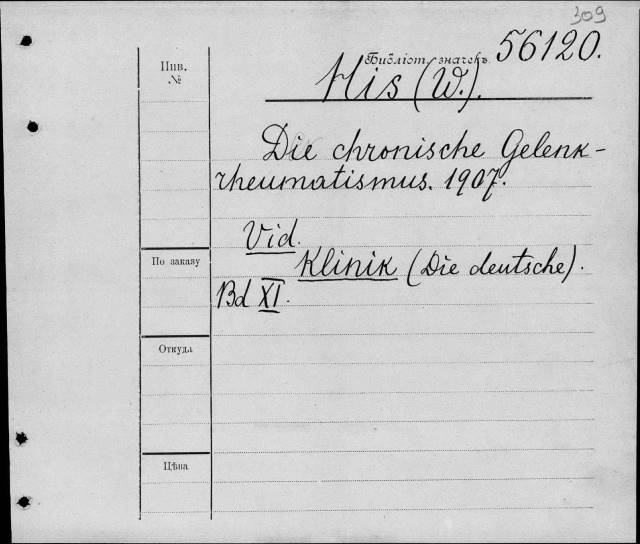 309
Библіот. значекъ 56120.
Инв.
№
His (W.).
Die chronische Gelenk-
rheumatismus. 1907.
Vid.
По заказу
Klinik (Die deutsche).
Bd XI.
Откуда
Цѣна